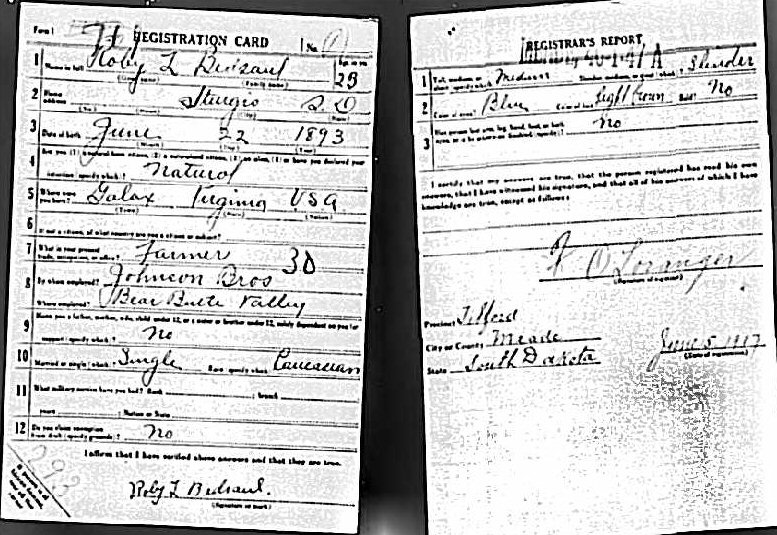 Form 1
REGISTRATION CARD No.
1 Name in full Roby L Bedsaul Age in yrs
(Given name) (Family name) 23
2 Home address Sturgis S.D
(No.) (Street) (City) (State)
3 Date of birth June 22 1893
(Month) (Day) (Year)
4 Are you (1) a natural born citizen, (2) a naturalized citizen, (3) an alien, (4) or have you declared your
intention (specify which)? Natural
5 Where were you born? Galax Virginia USA
(Town) (State) (Nation)
6 If not a citizen, of what country are you a citizen or subject?
7 What is your present trade, occupation, or office? Farmer 30
8 By whom employed? Johnson Bros
Where employed? Bear Butte Valley
9 Have you a father, mother, wife, child under 12, or a sister or brother under 12, solely dependent on you for
support (specify which)? No
10 Married or single (which)? Single Race (specify which)? Caucasian
11 What military service have you had? Rank ; branch
years ; Nation or State
12 Do you claim exemption from draft (specify grounds)? No
I affirm that I have verified above answers and that they are true.
293
Roby L Bedsaul.
(Signature or mark)
REGISTRAR'S REPORT
1 Tall, medium, or short (specify which)? Medium Slender, medium, or stout (which)? Slender
2 Color of eyes? Blue Color of hair? Light brown Bald? No
3 Has person lost arm, leg, hand, foot, or both eyes, or is he otherwise disabled (specify)? No
I certify that my answers are true, that the person registered has read his own
answers, that I have witnessed his signature, and that all of his answers of which I have
knowledge are true, except as follows:
F O Loranger
(Signature of registrar)
Precinct Tilford
City or County Meade
State South Dakota June 5, 1917
(Date of registration)